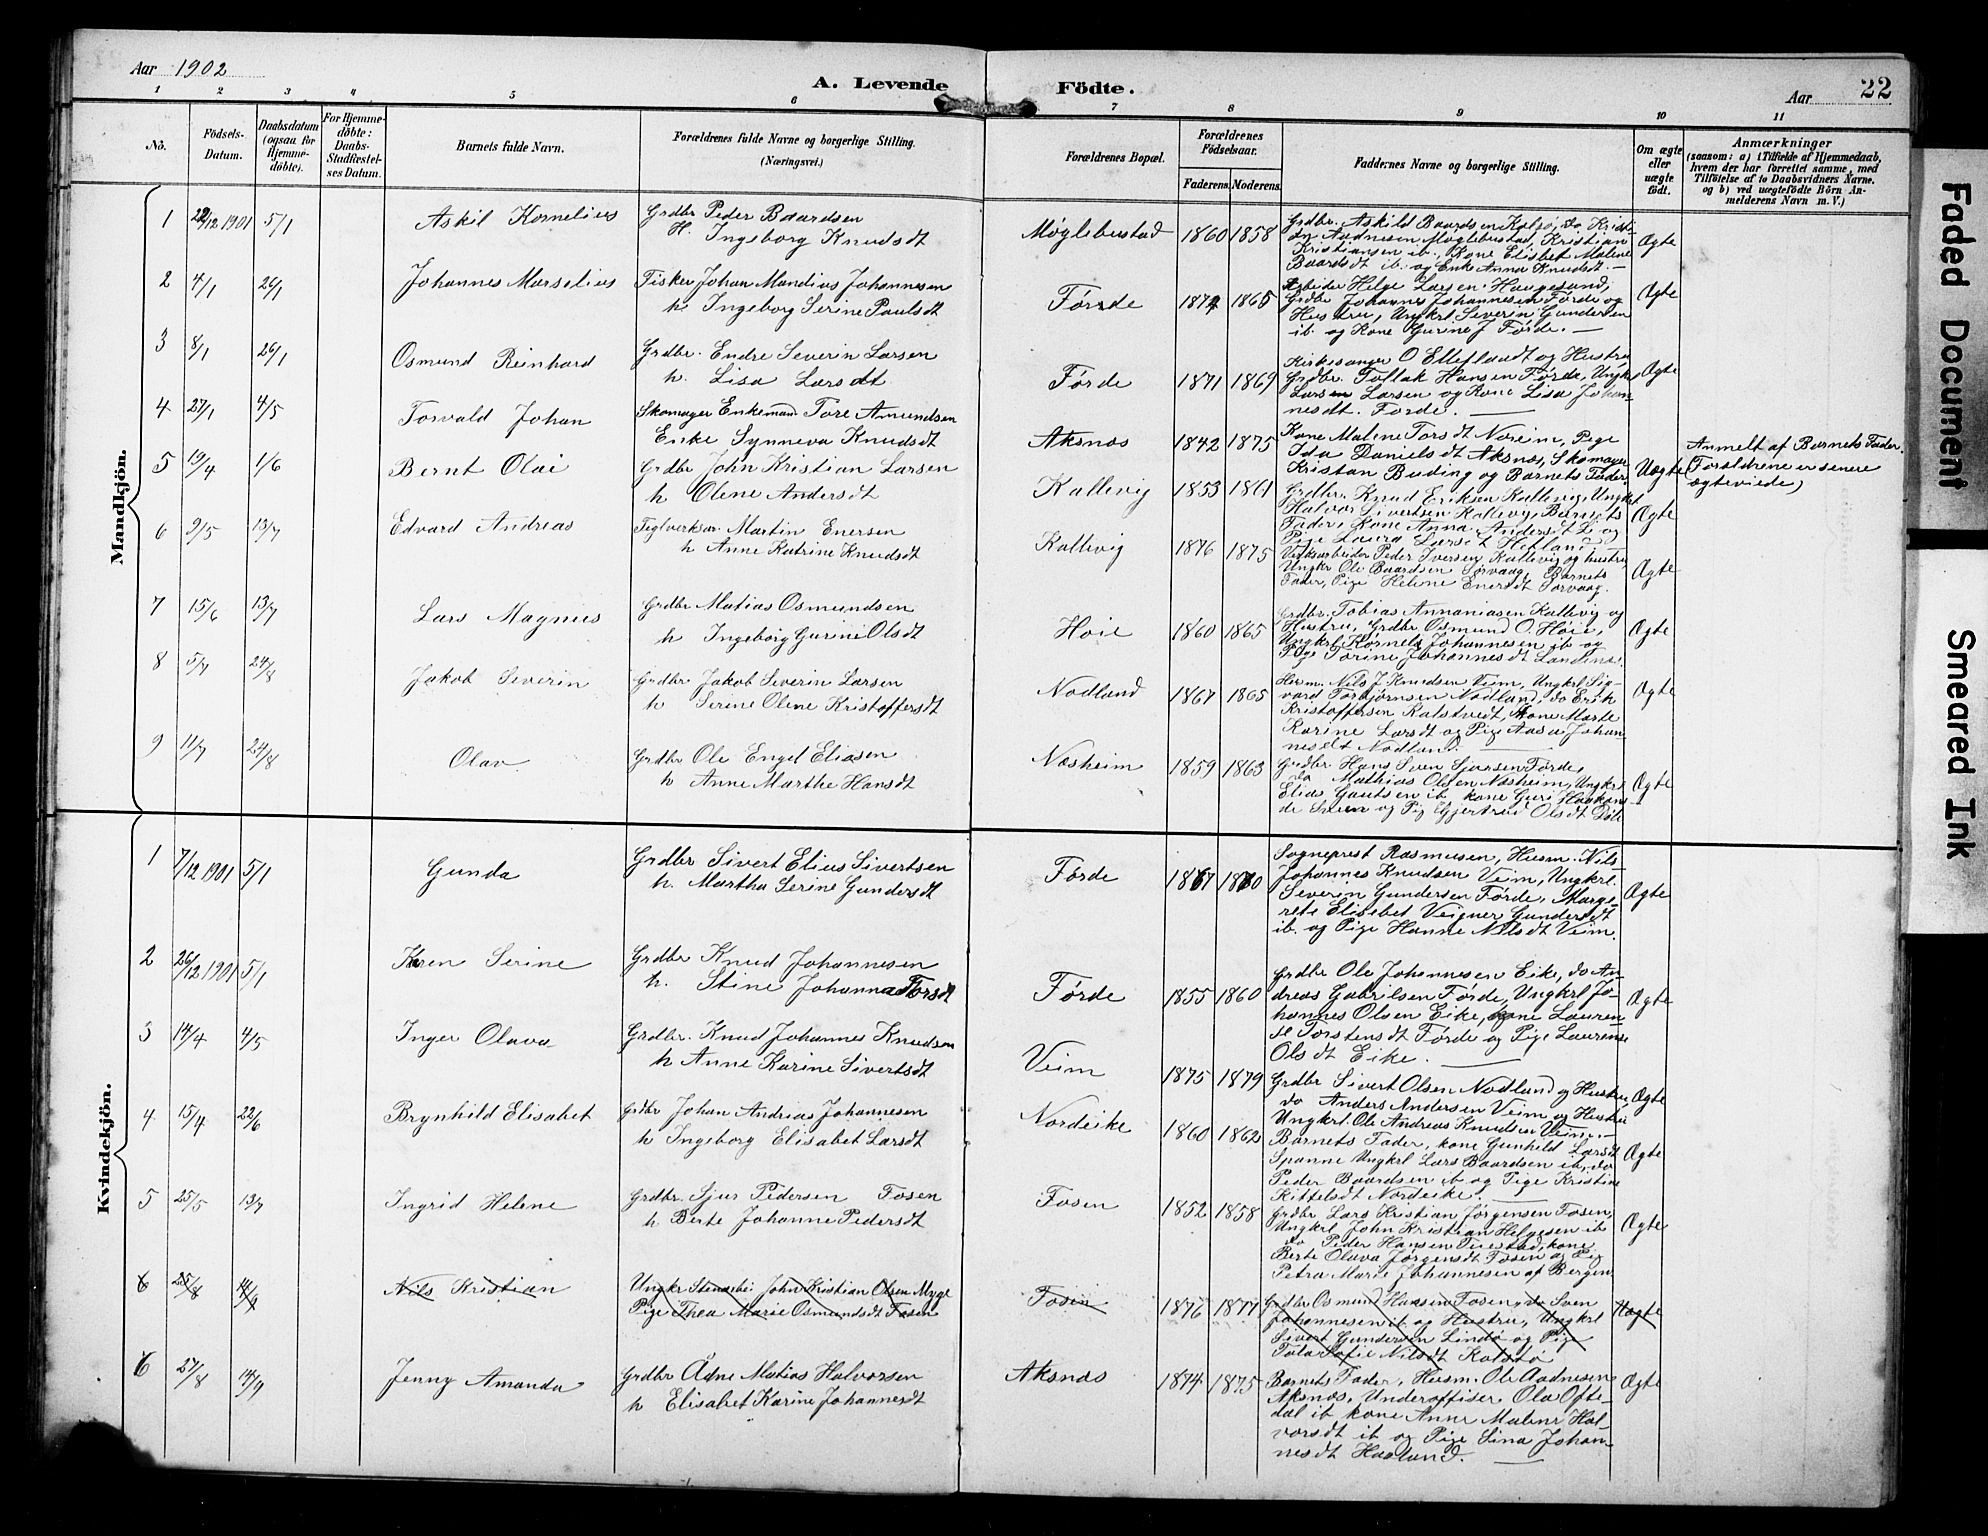 Aar 1902
A. Levende Födte.
Aar 22
1 2 3 4 5 6 7 8 9 10 11
No.
Födsels-Datum.
Daabsdatum (ogsaa for Hjemme-döbte).
For Hjemme-döbte: Daabs-Stadfæstel-ses Datum.
Barnets fulde Navn.
Forældrenes fulde Navne og borgerlige Stilling. (Næringsvei.)
Forældrenes Bopæl.
Forældrenes Födselsaar.
Faderens. Moderens.
Faddernes Navne og borgerlige Stilling.
Om ægte eller uægte födt.
Anmærkninger
(saasom: a) i Tilfælde af Hjemmedaab, hvem der har forrettet samme, med Tilföielse af to Daabsvidners Navne, og b) ved uægtefödte Börn An-melderens Navn m. V.)
Mandkjön.
1 22/12 1901 5/1 Askil Kornelius
Grdbr Peder Baardsen
H. Ingeborg Knudsdt
Møglebustad 1860 1858
Grdbr. Askild Baardsen Kalsø, do Kristi-
an Audnesen Møglebustad, Kristian
Kristiansen ib., Kone Elisbet Malene
Baardsdt ib. og Enke Anna Knudsdt. —
Ægte
2 4/1 26/1 Johannes Marselius
Fisker Johan Mandius Johannesen
h. Ingeborg Serine Paulsdt
Førde 1874 1865
Arbeider Helge Larsen Haugesund,
Grdbr Johannes Johannesen Førde og
Hustru, Ungkrl Severin Gundersen
ib. og Kone Gurine J Førde. —
Ægte
3 8/1 26/1 Osmund Reinhard
Grdbr. Endre Severin Larsen
h. Lisa Larsdt
Førde 1871 1869
Kirkesanger O Elleflaadt og Hustru,
Grdbr. Tollak Hansen Førde, Ungkrl
Larsen Larsen og Kone Lisa Johan-
nesdt. Førde. —
Ægte
4 27/1 4/5 Torvald Johan
Skomager Enkemand Tore Amundsen
Enke Synneva Knudsdt
Aksnæs 1842 1875
Kone Malene Torsdt Noreim, Pige
Ida Danielsdt Aksnæs, Skomager
Kristan Buding og Barnets Fader.
Uægte
Anmelt af Barnets Fader.
(Forældrene er senere
ægteviede)
5 19/4 1/6 Bernt Olai
Grdbr John Kristian Larsen
h Olene Andersdt
Kallevig 1853 1861
Grdbr. Knud Eriksen Kallevig, Ungkrl
Halvor Sivertsen Kallevig, Barnets
Fader, Kone Anna Andersdt Li og
Pige Laura Larsdt Hetland —
Ægte
6 9/5 13/7 Edvard Andreas
Teglverksar. Martin Enersen
h Anne Katrine Knudsdt
Kallevig 1876 1875
Verksarbeider Peder Iversen Kallevig og hustru
Ungkr Ole Baardsen Sørvaag, Barnets
Fader, Pige Helene Enersdt Sørvaag.
Ægte
7 15/6 13/7 Lars Magnus
Grdbr Matias Osmundsen
h Ingeborg Gurine Olsdt
Høie 1860 1865
Grdbr. Tobias Annaniasen Kallevig og
Hustru, Grdbr Osmund O. Høie,
Ungkrl Kornels Johannesen ib og
Pige Torine Johannesdt Landnes.
Ægte
8 5/7 24/8 Jakob Severin
Grdbr Jakob Severin Larsen
h Serine Olene Kristoffersdt
Nodland 1867 1865
Husm. Nils J Knudsen Veim, Ungkrl Si-
vard Torbjørnsen Nodland, do Erik
Kristoffersen Kalstvedt, Kone Marte
Karine Larsdt og Pige Aasa Johan-
nesdt Nodland. —
Ægte
9 11/7 24/8 Olav
Grdbr Ole Engel Eliasen
h Anne Marthe Hansdt
Næsheim 1859 1863
Grdbr Hans Sven Sjursen Førde,
do Mathias Olsen Næsheim, Ungkrl
Elias Gautsen ib kone Guri Haakons-
dt Sveen og Pig Gjertrud Olsdt Døle
Ægte
Kvindekjön.
1 7/12 1901 5/1 Gunda
Grdbr Sivert Elius Sivertsen
h. Martha Serine Gundersdt
Førde 1867 1870
Sogneprest Rasmusen, Husm. Nils
Johannes Knudsen Veim, Ungkrl.
Severin Gundersen Førde, Marg-
rete Elisebet Veigner Gundersdt
ib. og Pige Hanne Nilsdt Veim.
Ægte
2 26/12 1901 5/1 Karen Serine
Grdbr Knud Johannesen
h. Stine Johanna Torsdt
Førde 1855 1860
Grdbr Ole Johannesen Eike, do An-
dreas Gabrilsen Førde, Ungkrl Jo-
hannes Olsen Eike, kone Lauren-
se Torstensdt Førde og Pige Laurense
Olsdt Eike. —
Ægte
3 14/4 4/5 Inger Olava
Grdbr. Knud Johannes Knudsen
h Anne Karine Sivertsdt
Veim 1875 1879
Grdbr Sivert Olsen Nodland og Hustru
do Anders Andersen Veim og Hustru
Ungkrl. Ole Andreas Knudsen Veim. —
Ægte
4 15/4 22/6 Brynhild Elisabet
Grdbr Johan Andreas Johannesen
h Ingeborg Elisabet Larsdt
Nordeike 1860 1862
Barnets Fader, kone Gunhild Larsdt
Spanne Ungkrl Lars Baardsen ib, do
Peder Baardsen ib og Pige Kristine
Kittelsdt Nordeike. —
Ægte
5 25/5 13/7 Ingrid Helene
Grdbr. Sjur Pedersen Fosen
h Berte Johanne Pedersdt
Fosen 1852 1858
Grdbr Lars Kristian Jørgensen Fosen,
Ungkrl John Kristian Helgesen ib
do Peder Hansen Tuestad, kone
Berte Olava Jørgensdt Fosen og Pig
Petra Marie Johannesen af Bergen
Ægte
6 25/8 14/9 Nils Kristian
Ungkr Stenarbei. John Kristian Olsen Myge
Pige Thea Marie Osmundsdt Fosen
Fosen 1876 1877
Grdbr Osmund Hansen Fosen, do Sven
Johannesen ib og Hustru, Ungkrl
Sivert Gundersen Lindø og Pige
Tala Sofie Nilsdt Kalstø
Uægte
6 27/8 14/9 Jenny Amanda
Grdbr Ådne Matias Halvorsen
h Elisabet Karine Johannesdt
Aksnæs 1874 1875
Barnets Fader, Husm. Ole Aadnesen
Aksnæs, Underoffiser Ola Ofte-
dal ib kone Anne Malene Hal-
vorsdt ib og Pige Lina Johan-
nesdt Hauland. —
Ægte
Faded Document
Smeared Ink